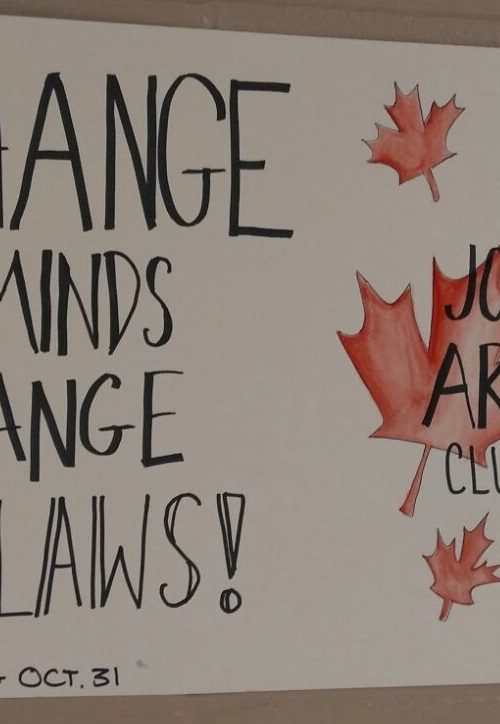 HANGE
MINDS
ANGE
LAWS!
OCT. 31
JO
AR
CLU